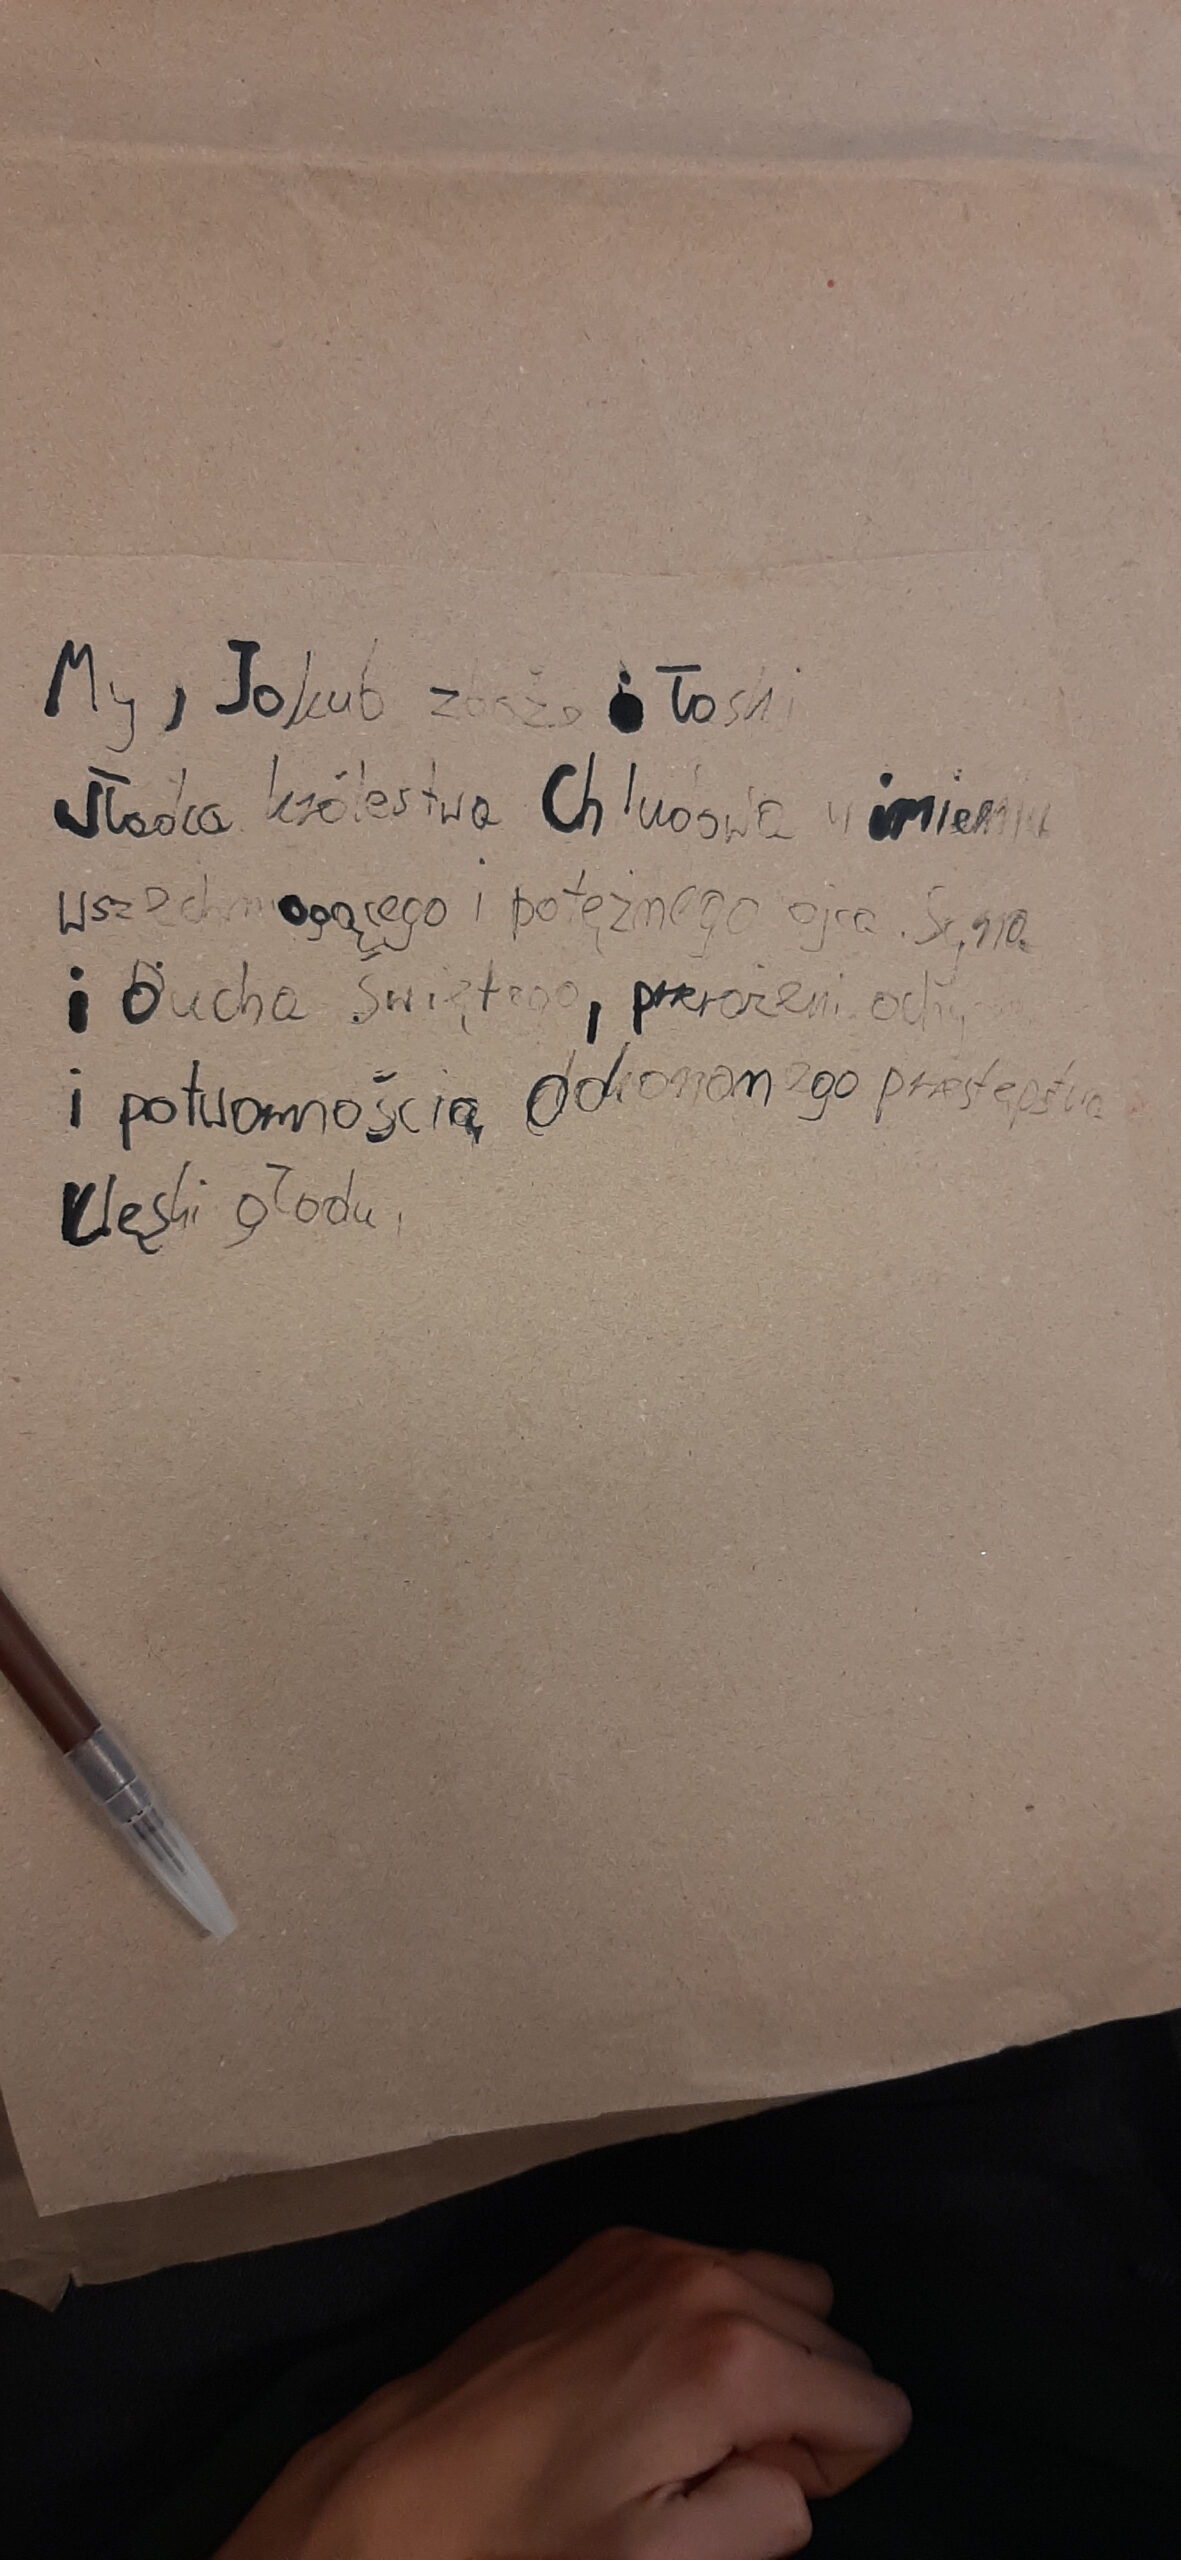 My, Jakub z bożej łaski
władca królestwa Chludowa w imieniu
wszechmogącego i potężnego ojca. Syna
i Ducha Świętego, przerożeni
i potwornością dokonanego przestępstwa
klęski głodu,